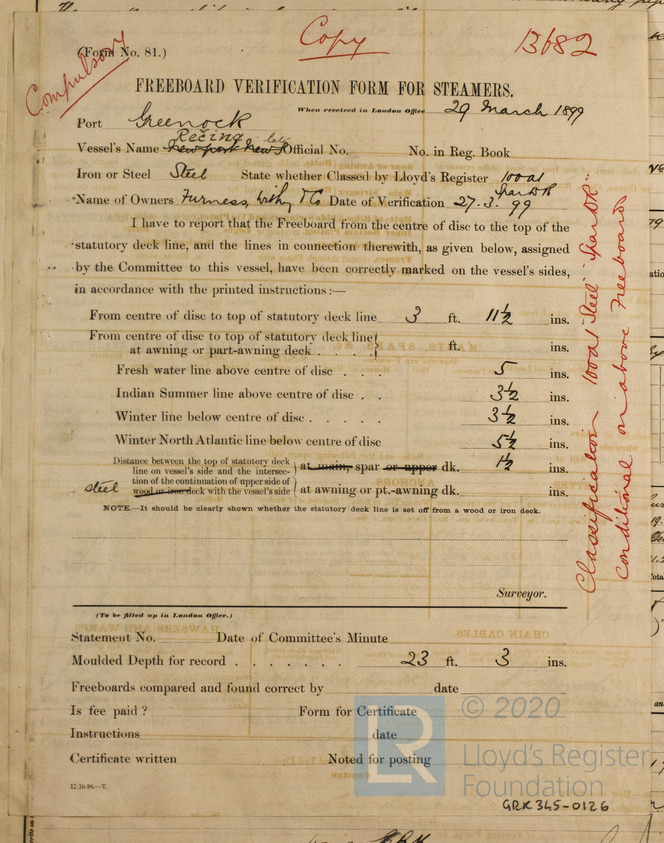 Copy
13682
(Form No. 81.)
Compulsory
FREEBOARD VERIFICATION FORM FOR STEAMERS.
When received in London Office 29 March 1899
Port Greenock
Rečina late
Vessel's Name Newport News Official No. No. in Reg. Book
Iron or Steel Steel State whether Classed by Lloyd's Register 100A1
Spar DK
Name of Owners Furness, Withy & Co Date of Verification 27.3.99
I have to report that the Freeboard from the centre of disc to the top of the
statutory deck line, and the lines in connection therewith, as given below, assigned
by the Committee to this vessel, have been correctly marked on the vessel's sides,
in accordance with the printed instructions:—
From centre of disc to top of statutory deck line 3 ft. 11½ ins.
From centre of disc to top of statutory deck line
at awning or part-awning deck . . . . ft. ins.
Fresh water line above centre of disc . . 5 ins.
Indian Summer line above centre of disc . . 3½ ins.
Winter line below centre of disc . . . . . 3½ ins.
Winter North Atlantic line below centre of disc 5½ ins.
Distance between the top of statutory deck
line on vessel's side and the intersec-
tion of the continuation of upper side of
steel wood or iron deck with the vessel's side
at main, spar or upper dk. 1½ ins.
at awning or pt.-awning dk. ins.
NOTE.—It should be clearly shown whether the statutory deck line is set off from a wood or iron deck.
Surveyor.
Classification 100A1 "Steel" "Spar DK"
Conditional on above Freeboards
(To be filled up in London Office.)
Statement No. Date of Committee's Minute
Moulded Depth for record . . . . . . . 23 ft. 3 ins.
Freeboards compared and found correct by date
Is fee paid ? Form for Certificate
Instructions date
Certificate written Noted for posting
17.10.98.—T.
© 2020
LR
Lloyd's Register
Foundation
GRK345-0126